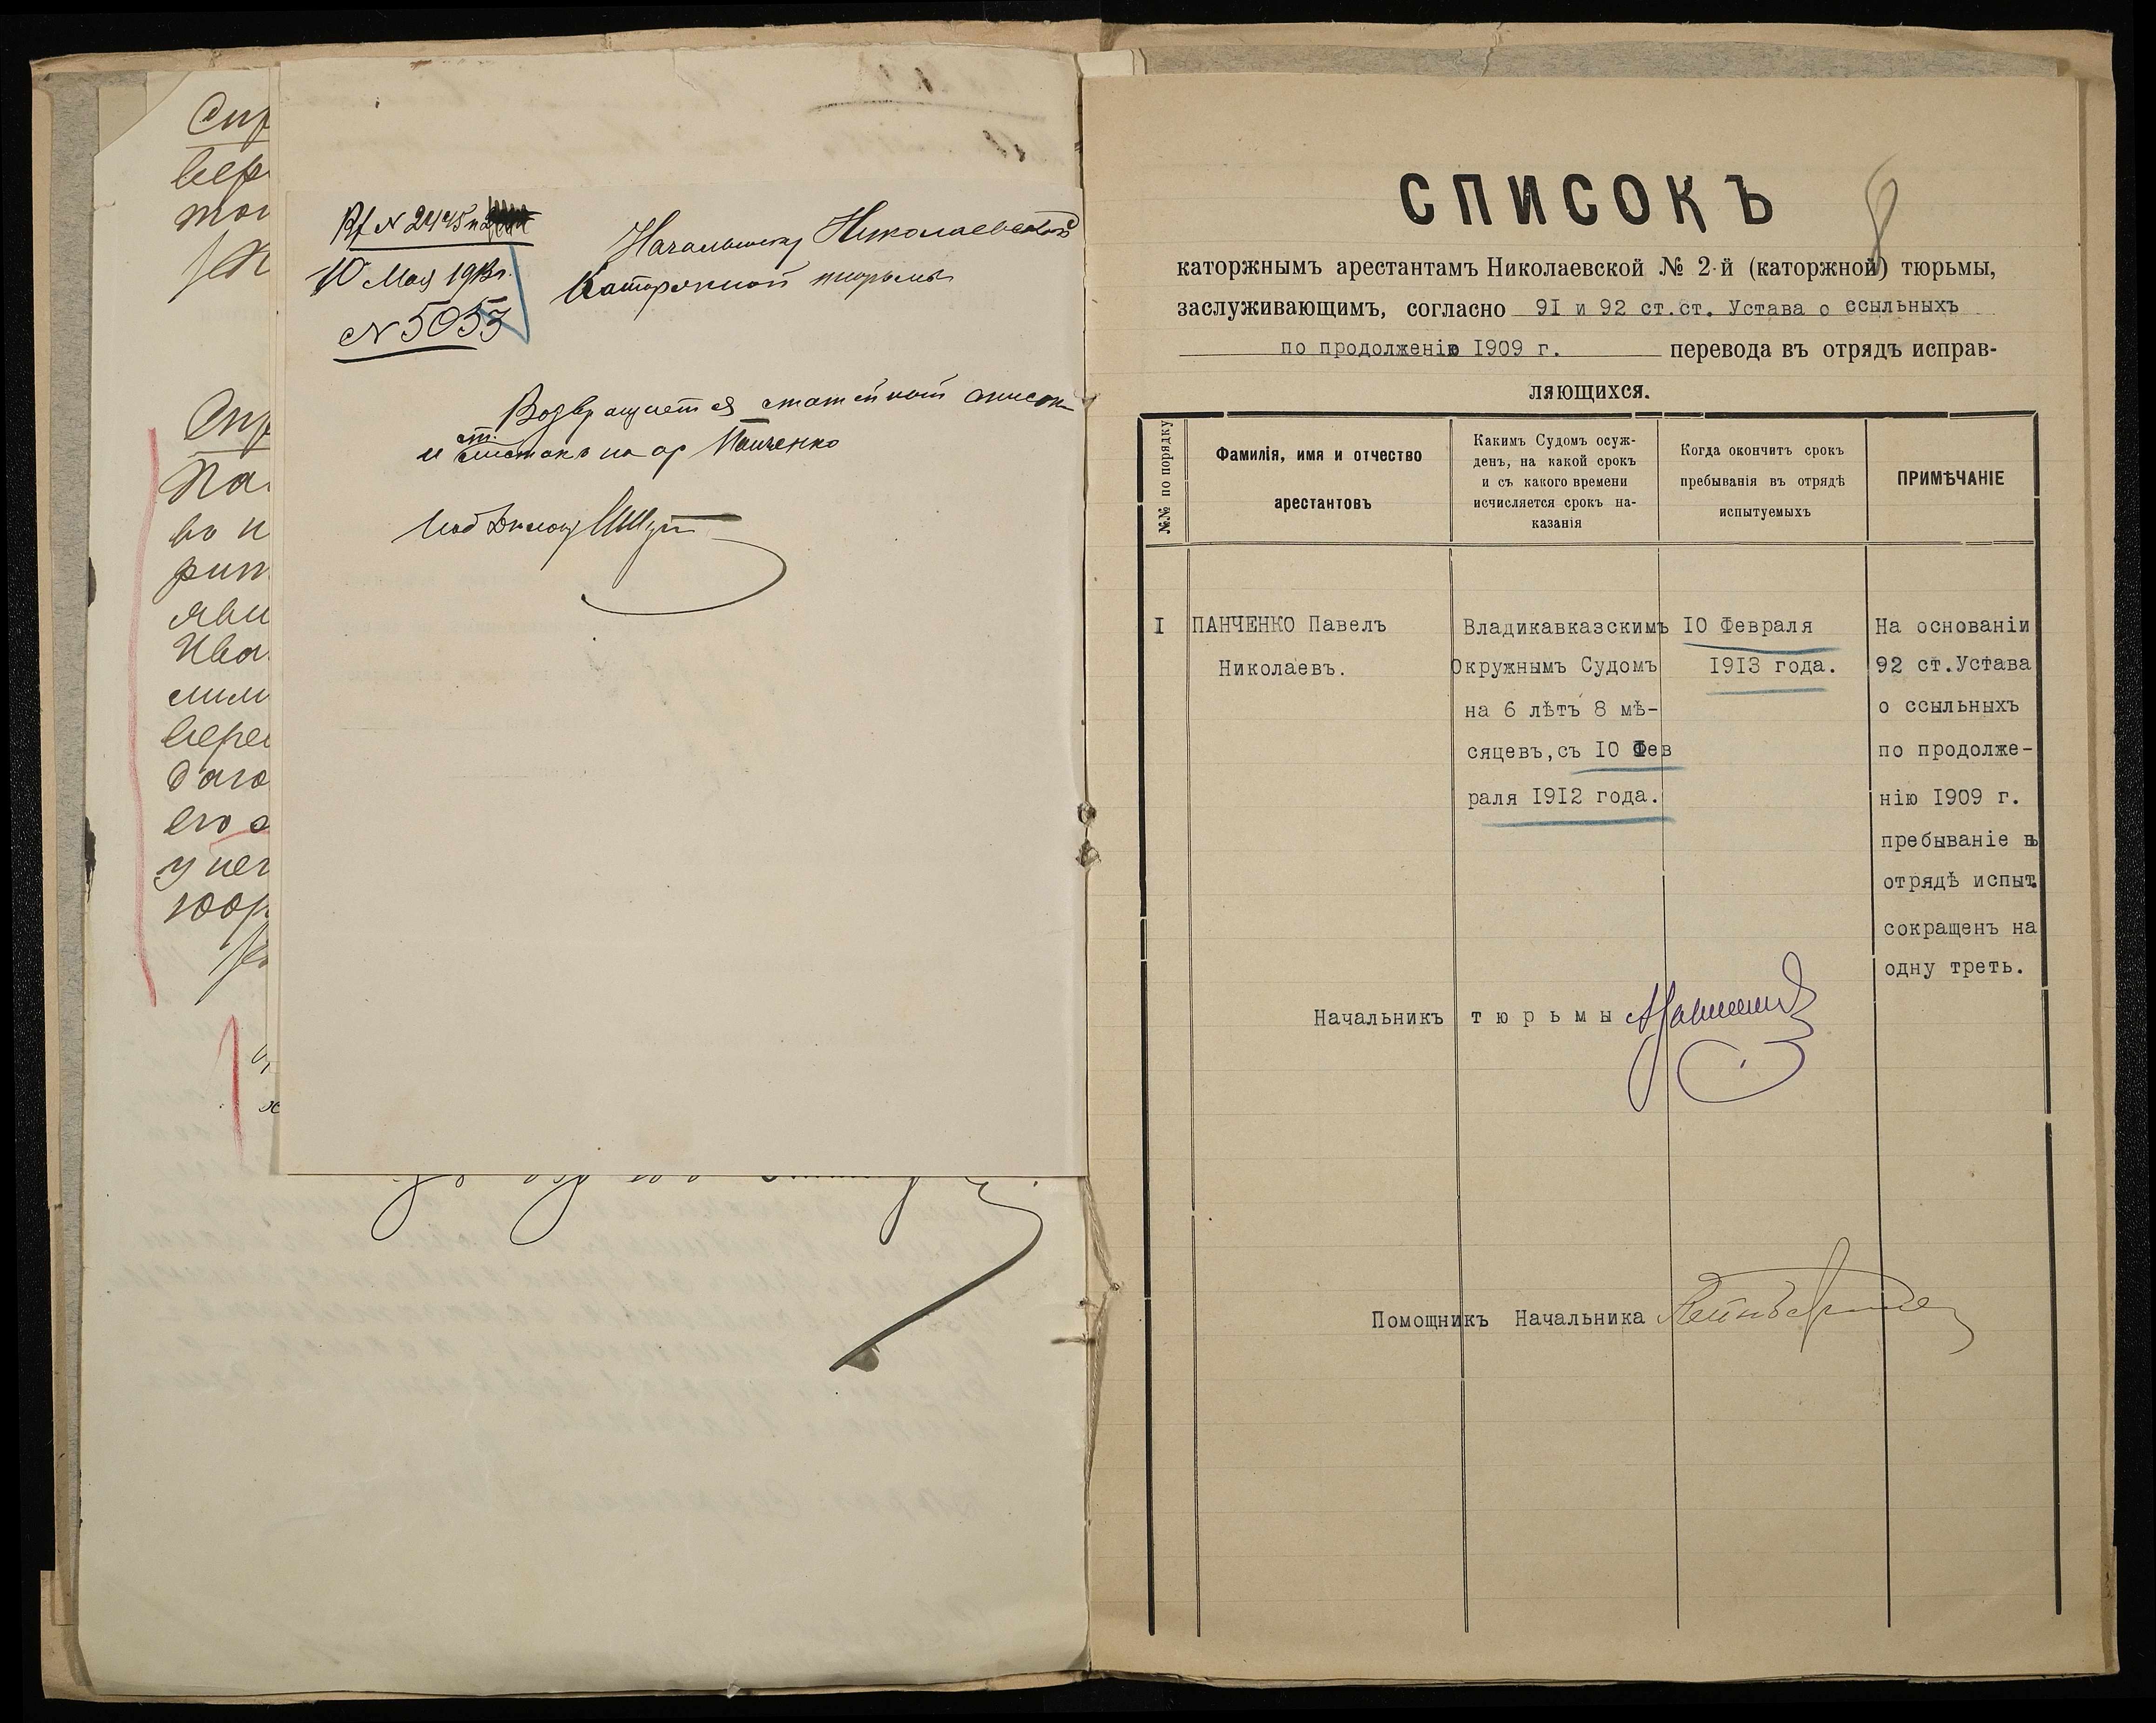 Спр
вер
тов
Спр
Пан
во н
рит
яви
Ива
мили
вере
даго
его с
у нег
B/N 2445
10 Мая 1913г.
N 5053
Начальнику Николаевской
Каторжной тюрьмы
Возвращается статейный список
и ст. листокъ на ар Панченко
8
СПИСОКЪ
каторжнымъ арестантамъ Николаевской № 2-й (каторжной) тюрьмы,
заслуживающимъ, согласно 91 и 92 ст.ст. Устава о ссыльныхъ
по продолженію 1909 г. перевода въ отрядъ исправ-
ляющихся.
№№ по порядку
Фамилія, имя и отчество
арестантовъ
Какимъ Судомъ осуж-
денъ, на какой срокъ
и съ какого времени
исчисляется срокъ на-
казанія
Когда окончитъ срокъ
пребыванія въ отрядѣ
испытуемыхъ
ПРИМѢЧАНІЕ
I
ПАНЧЕНКО Павелъ
Николаевъ.
Владикавказскимъ
Окружнымъ Судомъ
на 6 лѣтъ 8 мѣ-
сяцевъ,съ IO Фев
раля I9I2 года.
IO Февраля
I9I3 года.
На основаніи
92 ст.Устава
о ссыльныхъ
по продолже-
нію I909 г.
пребываніе въ
отрядѣ испыт.
сокращенъ на
одну треть.
Начальникъ тюрьмы
Помощникъ Начальника